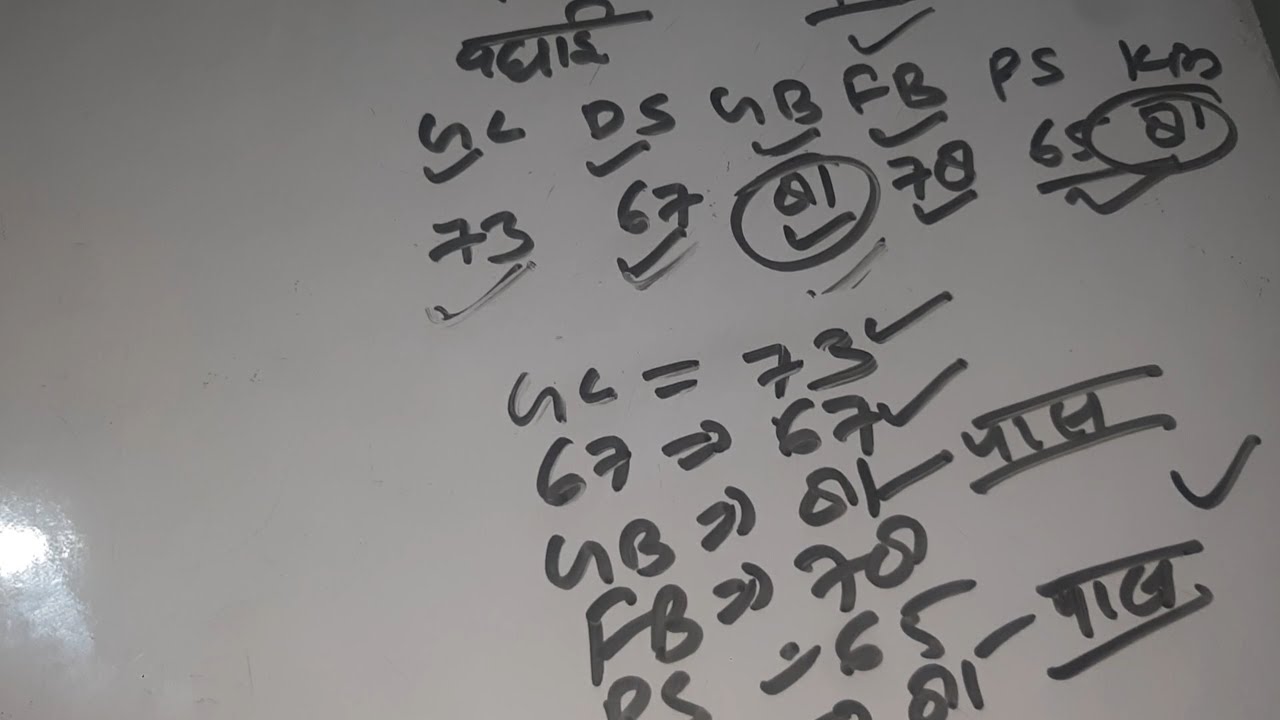 वधाई
GC DS GB FB PS KB
73 67 81 78 65 81
GC = 73
67 ⇒ 67
GB ⇒ 81 पास
FB ⇒ 78
PS 65 पास
81